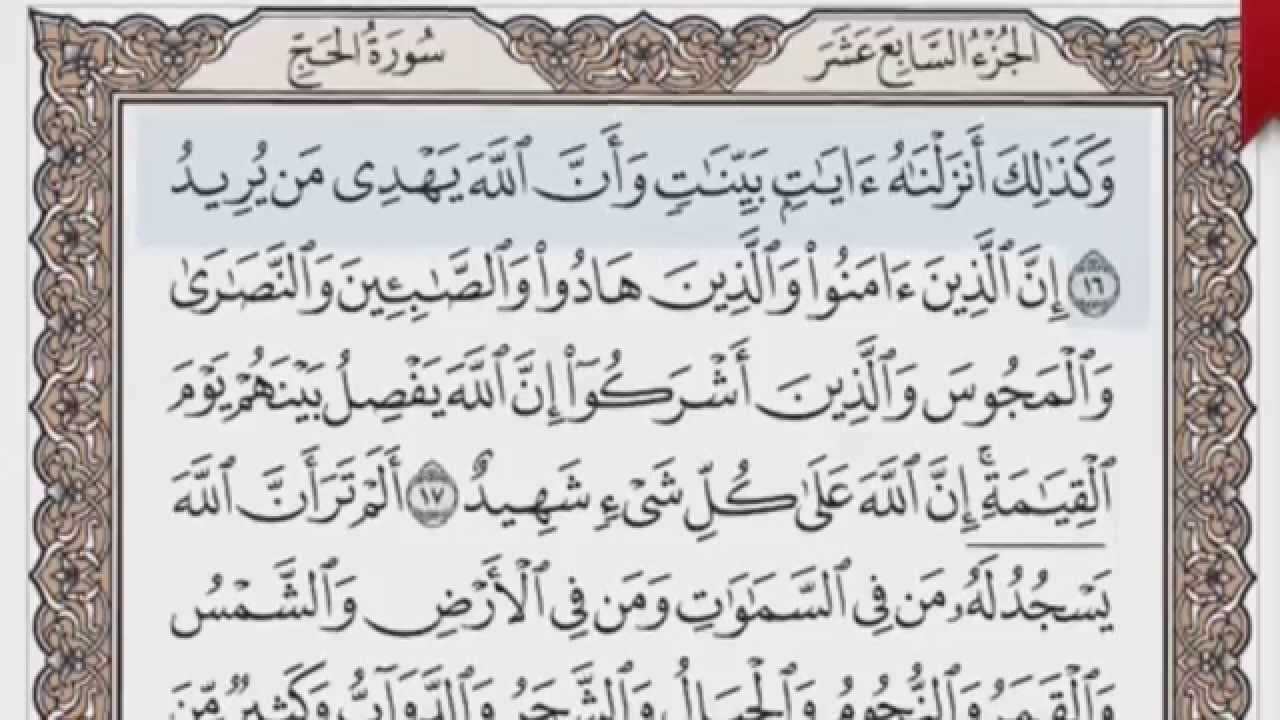 الجزء السابع عشر
سورة الحج
وَكَذَٰلِكَ أَنزَلْنَٰهُ ءَايَٰتٍۭ بَيِّنَٰتٍ وَأَنَّ ٱللَّهَ يَهْدِى مَن يُرِيدُ
١٦ إِنَّ ٱلَّذِينَ ءَامَنُوا۟ وَٱلَّذِينَ هَادُوا۟ وَٱلصَّٰبِـِٔينَ وَٱلنَّصَٰرَىٰ
وَٱلْمَجُوسَ وَٱلَّذِينَ أَشْرَكُوٓا۟ إِنَّ ٱللَّهَ يَفْصِلُ بَيْنَهُمْ يَوْمَ
ٱلْقِيَٰمَةِۚ إِنَّ ٱللَّهَ عَلَىٰ كُلِّ شَىْءٍ شَهِيدٌ ١٧ أَلَمْ تَرَ أَنَّ ٱللَّهَ
يَسْجُدُ لَهُۥ مَن فِى ٱلسَّمَٰوَٰتِ وَمَن فِى ٱلْأَرْضِ وَٱلشَّمْسُ
وَٱلْقَمَرُ وَٱلنُّجُومُ وَٱلْجِبَالُ وَٱلشَّجَرُ وَٱلدَّوَآبُّ وَكَثِيرٌ مِّنَ